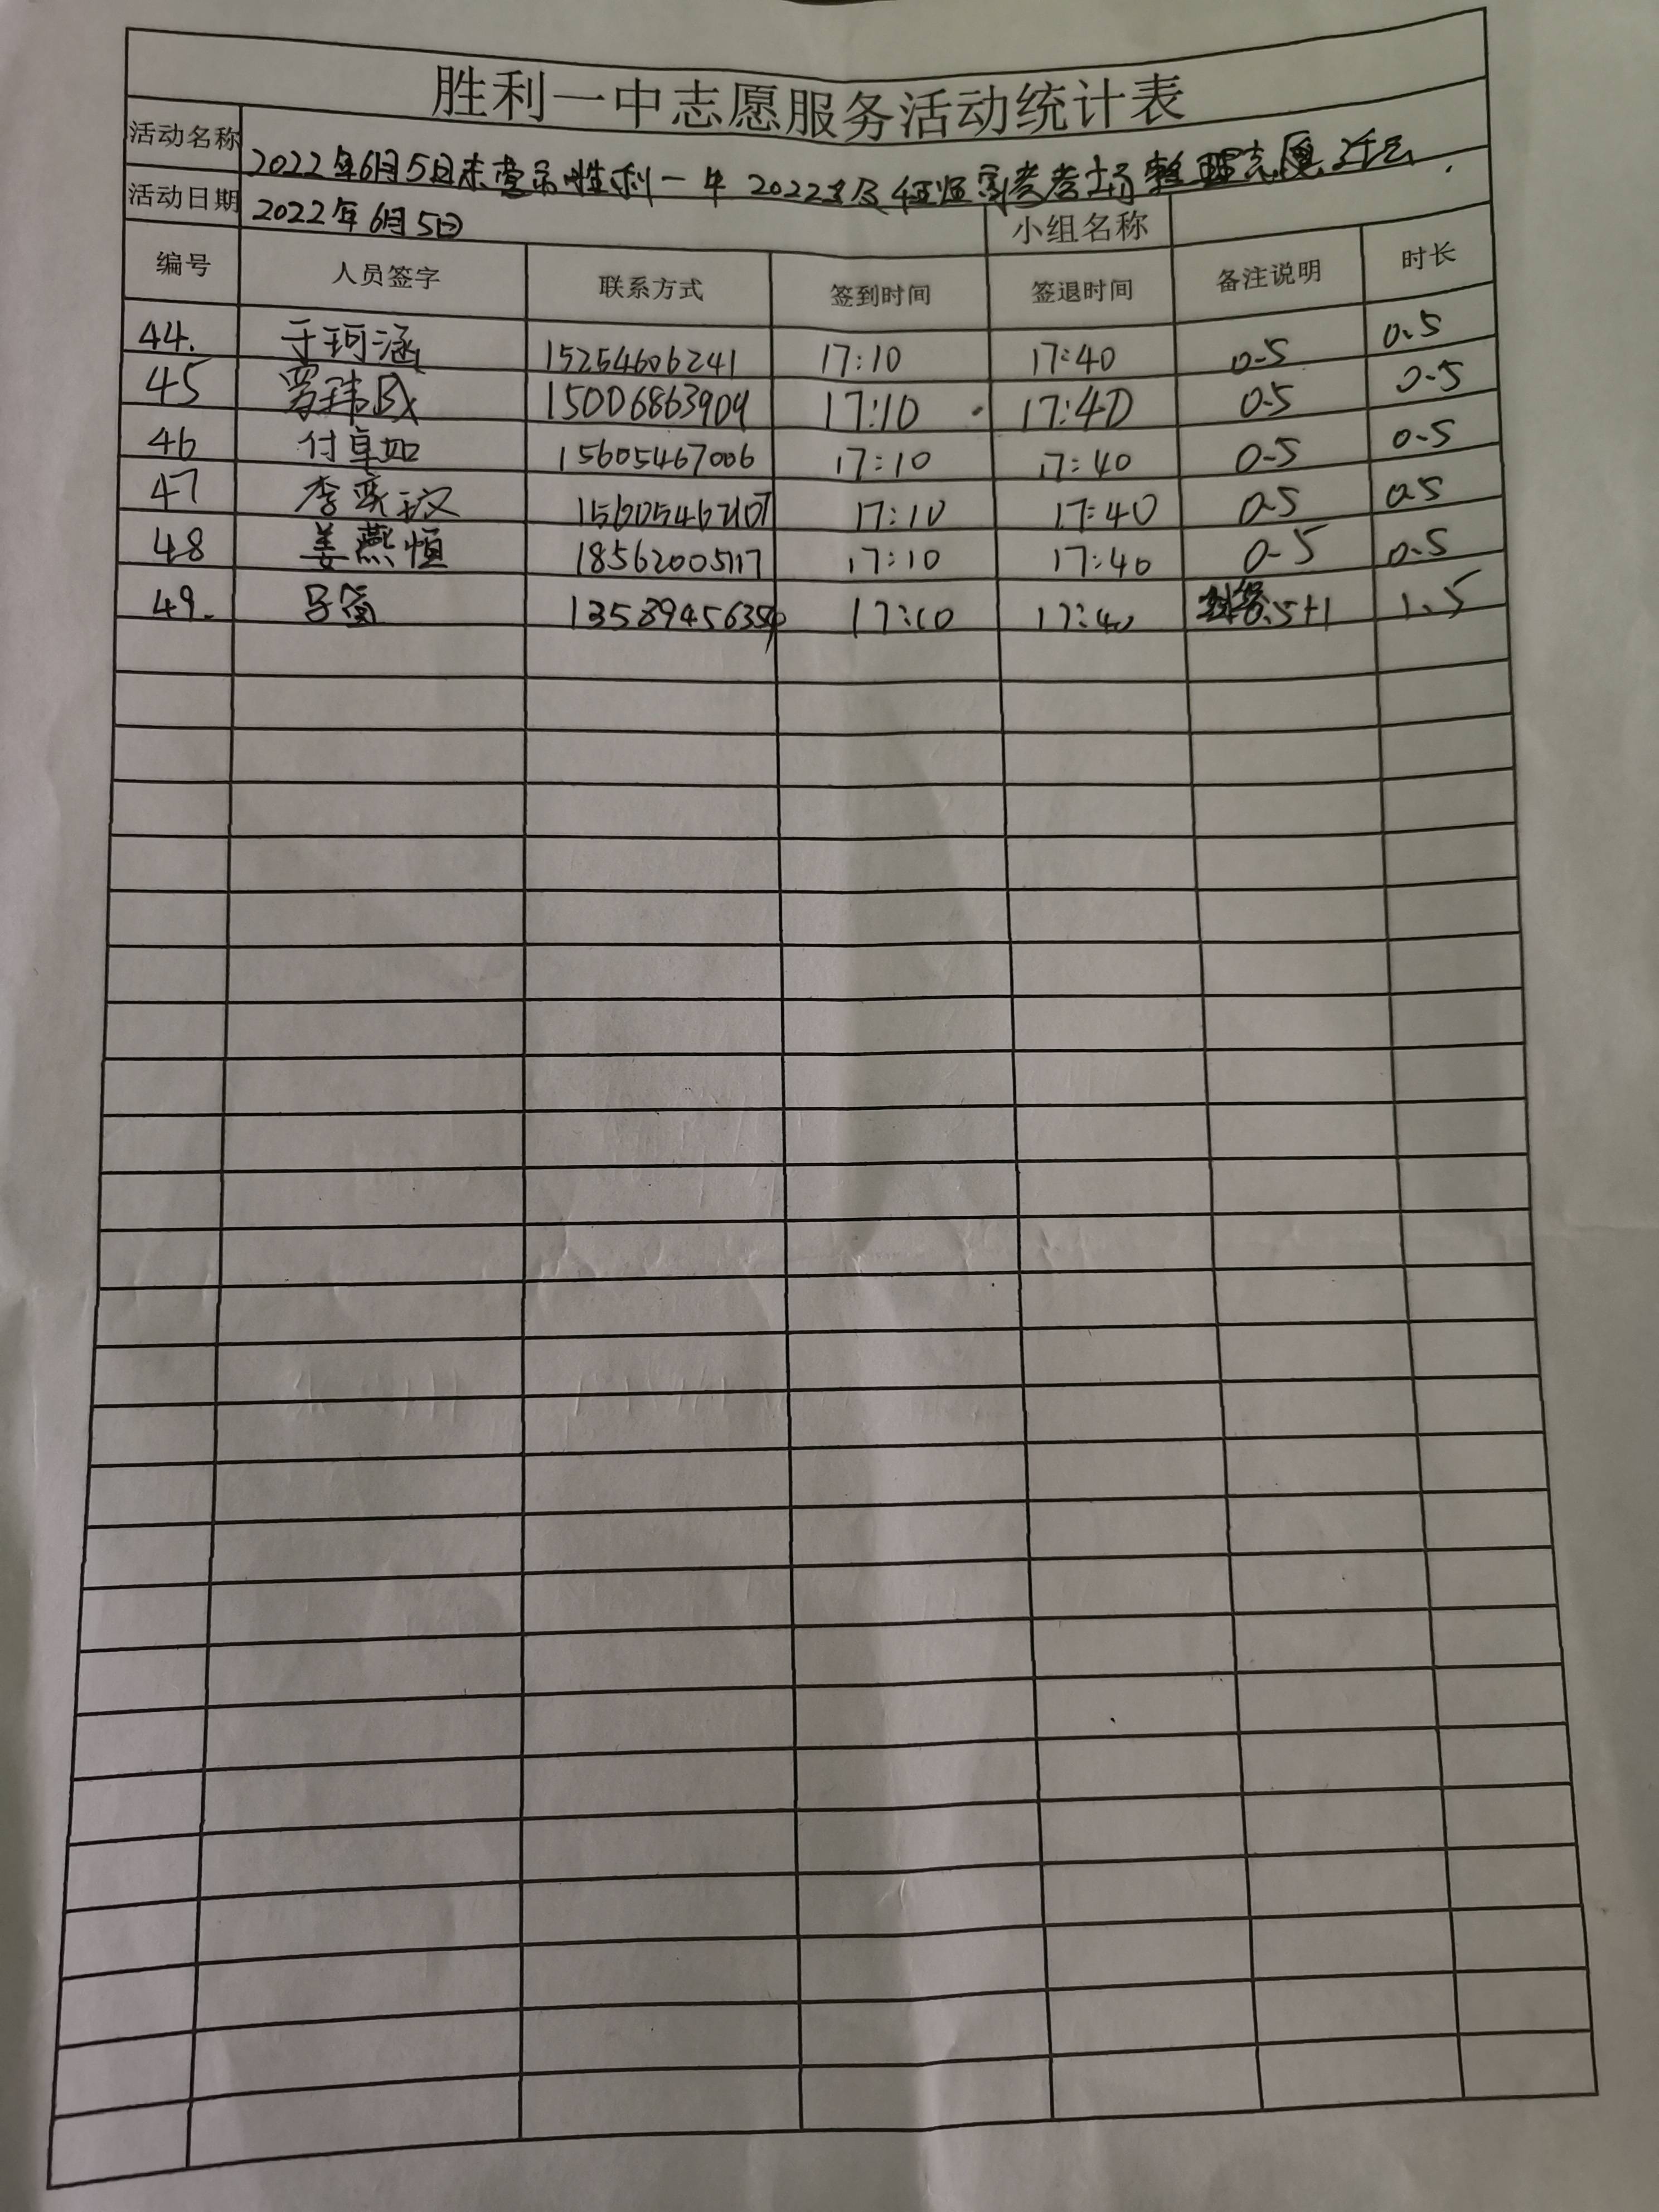 胜利一中志愿服务活动统计表
活动名称 2022年6月5日东营市胜利一中2022级 高考考场整理志愿活动
活动日期 2022年6月5日 小组名称
编号 人员签字 联系方式 签到时间 签退时间 备注说明 时长
44. 于珂涵 15254606241 17:10 17:40 0.5 0.5
45 15006863909 17:10 17:40 0.5 0.5
46 付卓如 15605467006 17:10 17:40 0.5 0.5
47 李奕玟 17:10 17:40 0.5 0.5
48 姜燕恒 18562005117 17:10 17:40 0.5 0.5
49. 17:10 17:40 .5+1 1.5